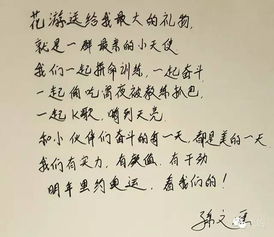 花游送给我最大的礼物,
就是一群最亲的小天使
我们一起拼命训练,一起奋斗
一起偷吃宵夜被教练扒皮
一起K歌,唱到天亮
和小伙伴们奋斗的每一天,都是美的一天
我们有实力,有颜值,有干劲
明年里约奥运,看我们的!
孙文雁